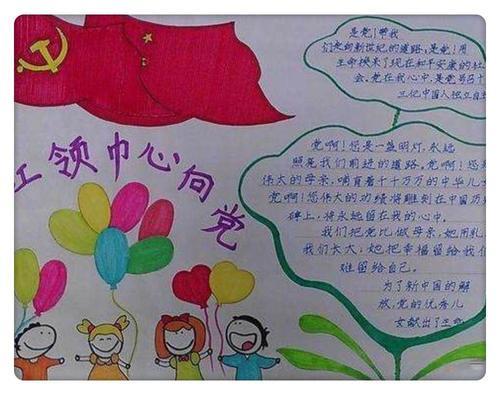 红领巾心向党
是党!带我
们走向新世纪的道路,是党!用
生命换来了现在和平安康的社
会。党在我心中,是党号召十
三亿中国人独立自
党啊!您是一盏明灯,永远
照亮我们前进的道路。党啊!您是
伟大的母亲,哺育着千千万万的中华儿
党啊!您伟大的功绩将雕刻在中国历
碑上,将永远留在我的心中。
我们把党比做母亲,她用乳
我们长大;她把幸福留给我们
难留给自己。
为了新中国的解
放,党的优秀儿
女献出了生命